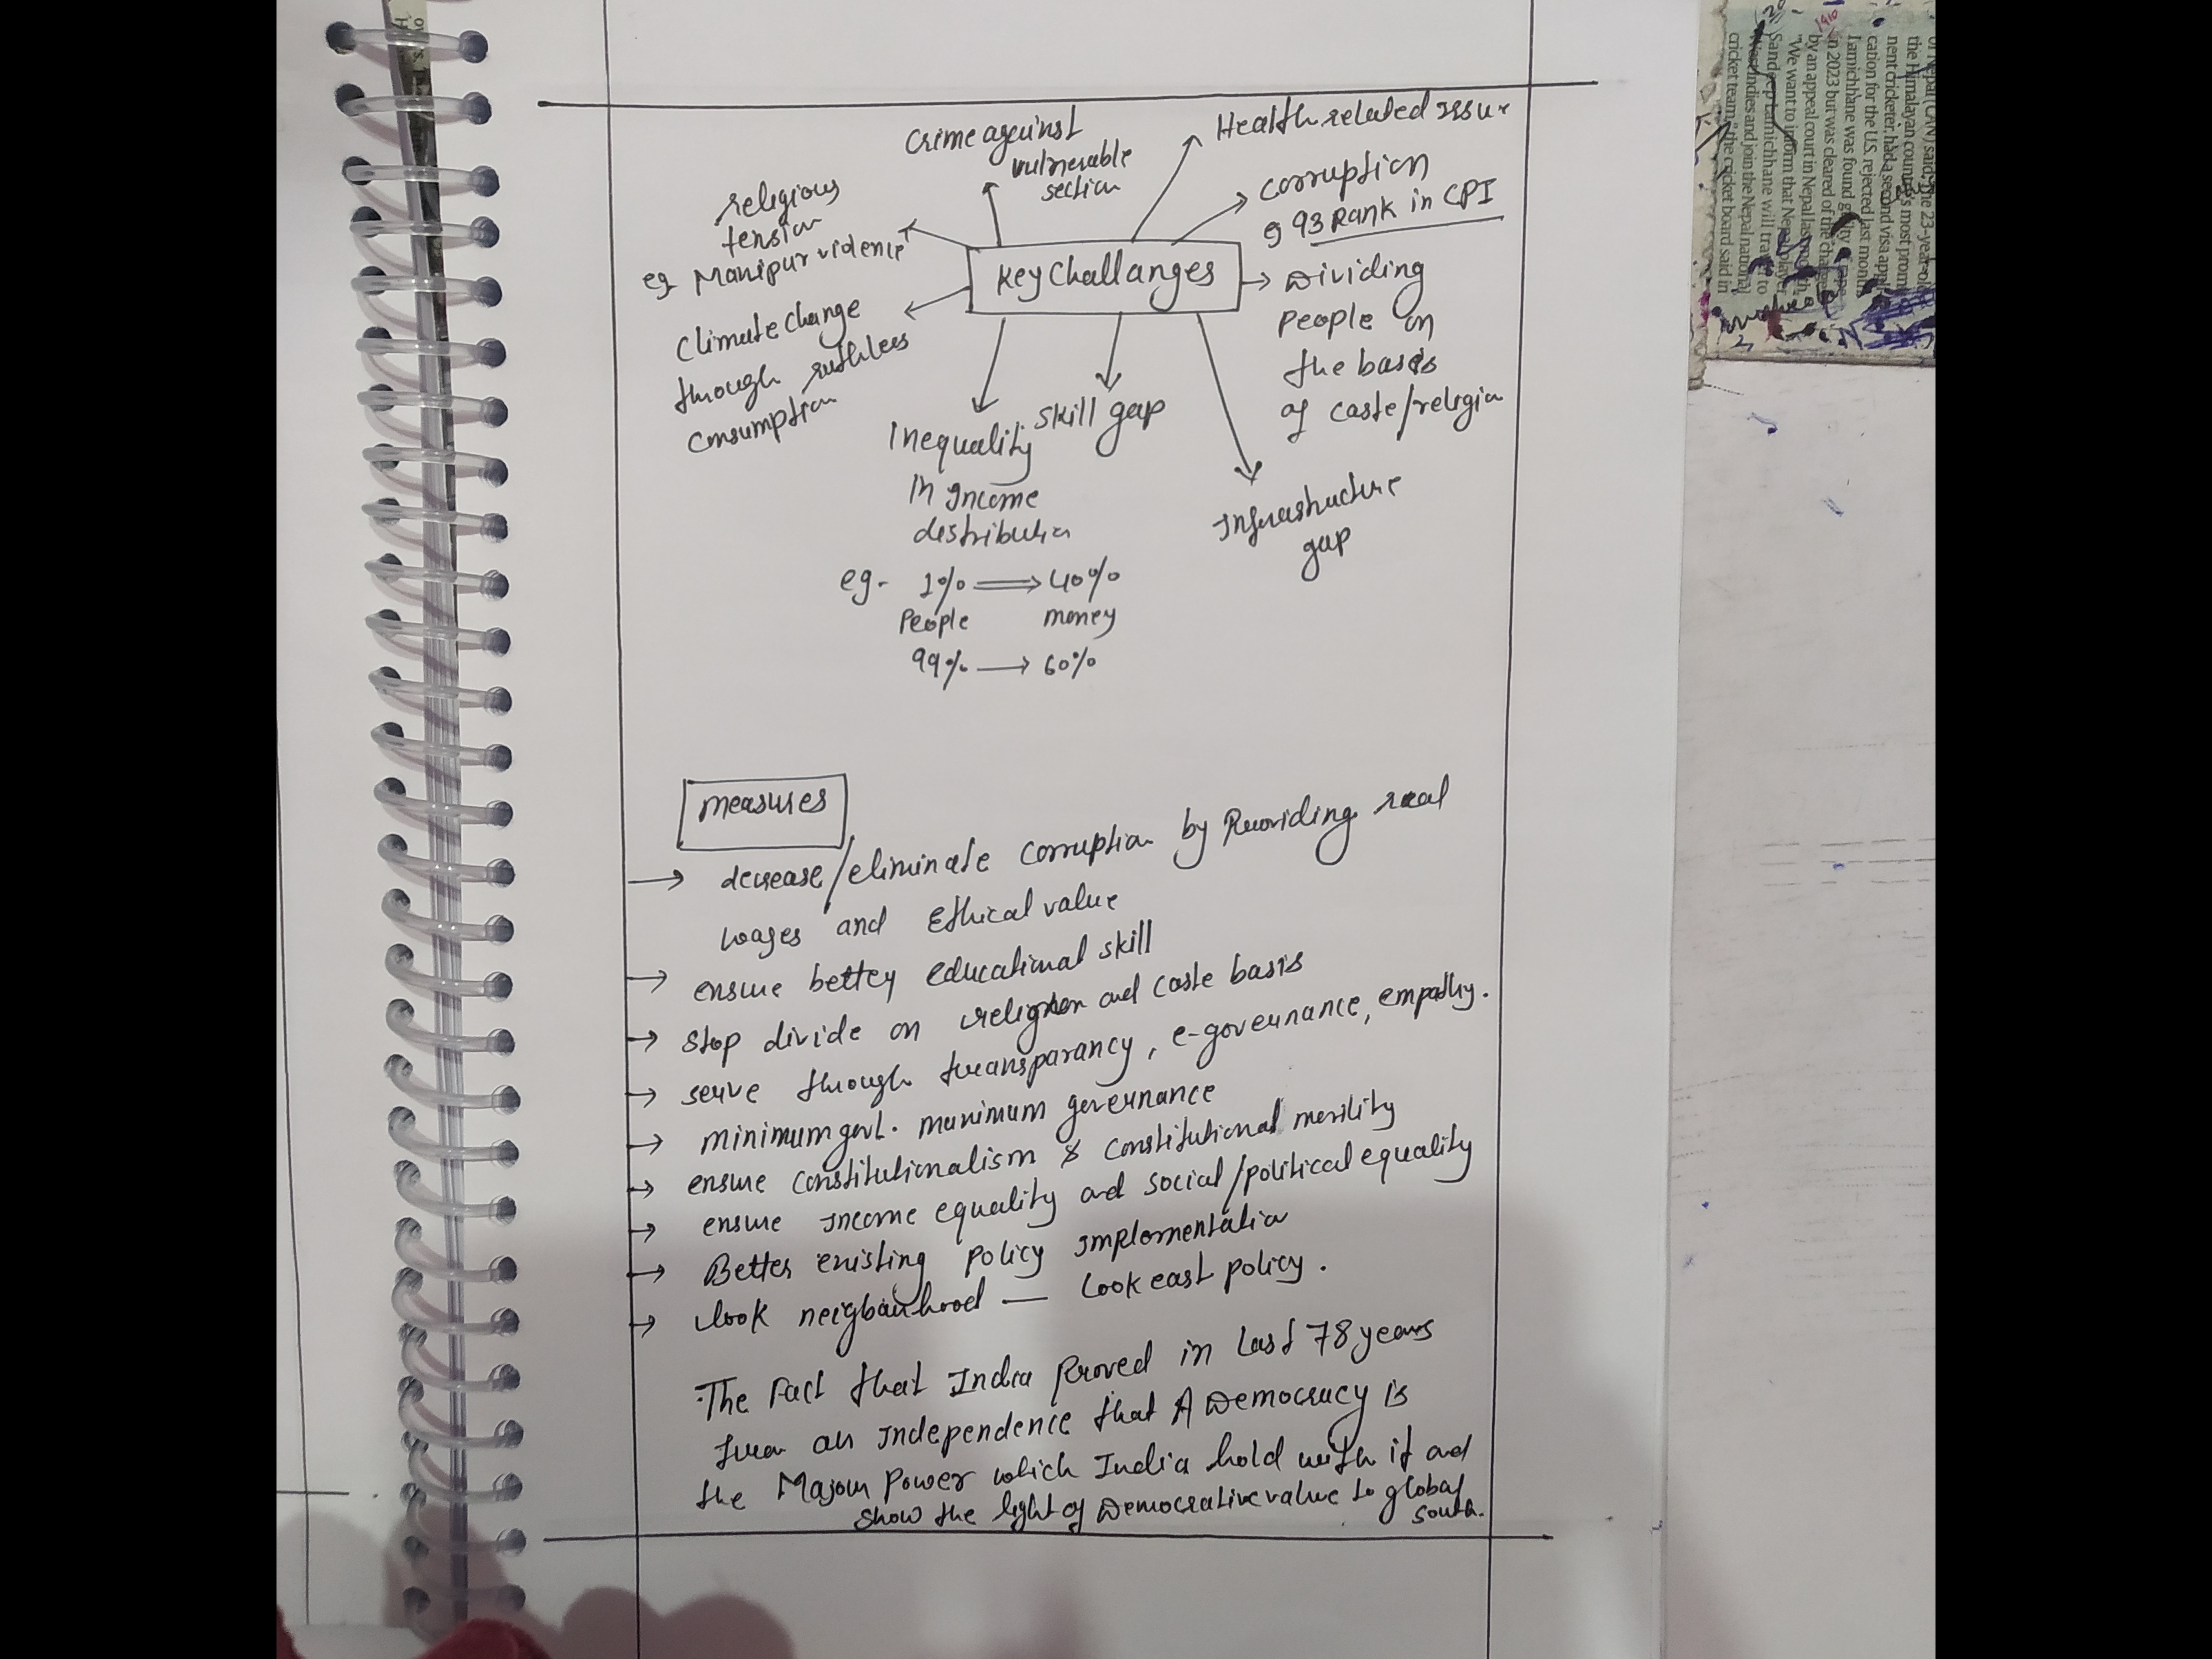 Crime against
vulnerable
section
Health related issue
religious
tension
eg Manipur violence
corruption
eg 93 Rank in CPI
Key Challanges
Dividing
People on
the basis
of caste/religion
Climate change
through ruthless
consumption
Inequality
in Income
distribution
skill gap
Infrastructure
gap
eg- 1% ⟹ 40%
People money
99% → 60%
measures
→ decrease/eliminate corruption by Providing real
wages and Ethical value
→ ensure better educational skill
→ stop divide on religion and caste basis
→ serve through transparancy, e-governance, empathy.
→ minimum govt. maximum governance
→ ensure constitutionalism & constitutional morility
→ ensure Income equality and social/political equality
→ Better existing policy implementation
→ look neigbourhood — Look east policy.
The Fact that India Proved in last 78 years
an Independence that A Democracy is
the Major Power which India hold with it and
show the light of Democrative value to global
south.
of Nepal (CAN) said. The 23-year-old
the Himalayan country's most promi
nent cricketer, had a second visa appli
cation for the U.S. rejected last month
Lamichhane was found guilty
in 2023 but was cleared of the charge
by an appeal court in Nepal last month.
"We want to inform that Nepal player
Sandeep Lamichhane will travel to
West Indies and join the Nepal national
cricket team," the cricket board said in